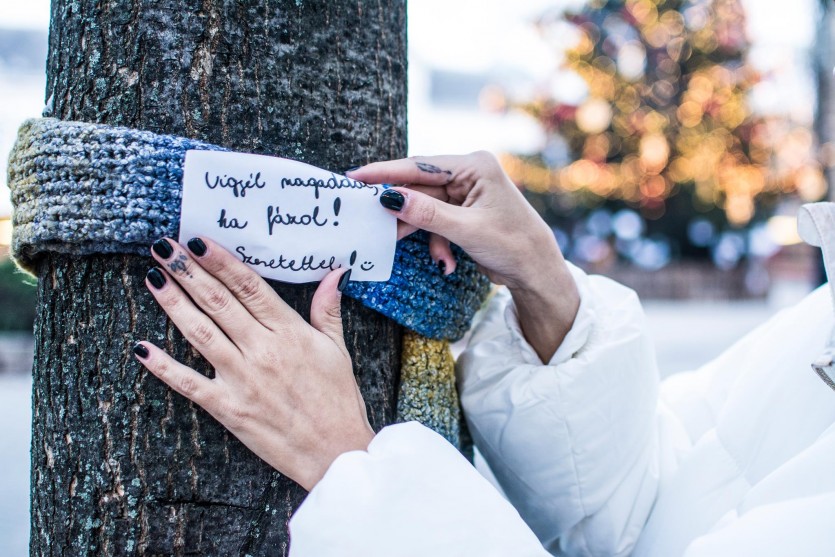 Vigyél magaddal,
ha fázol!
Szeretettel! :)